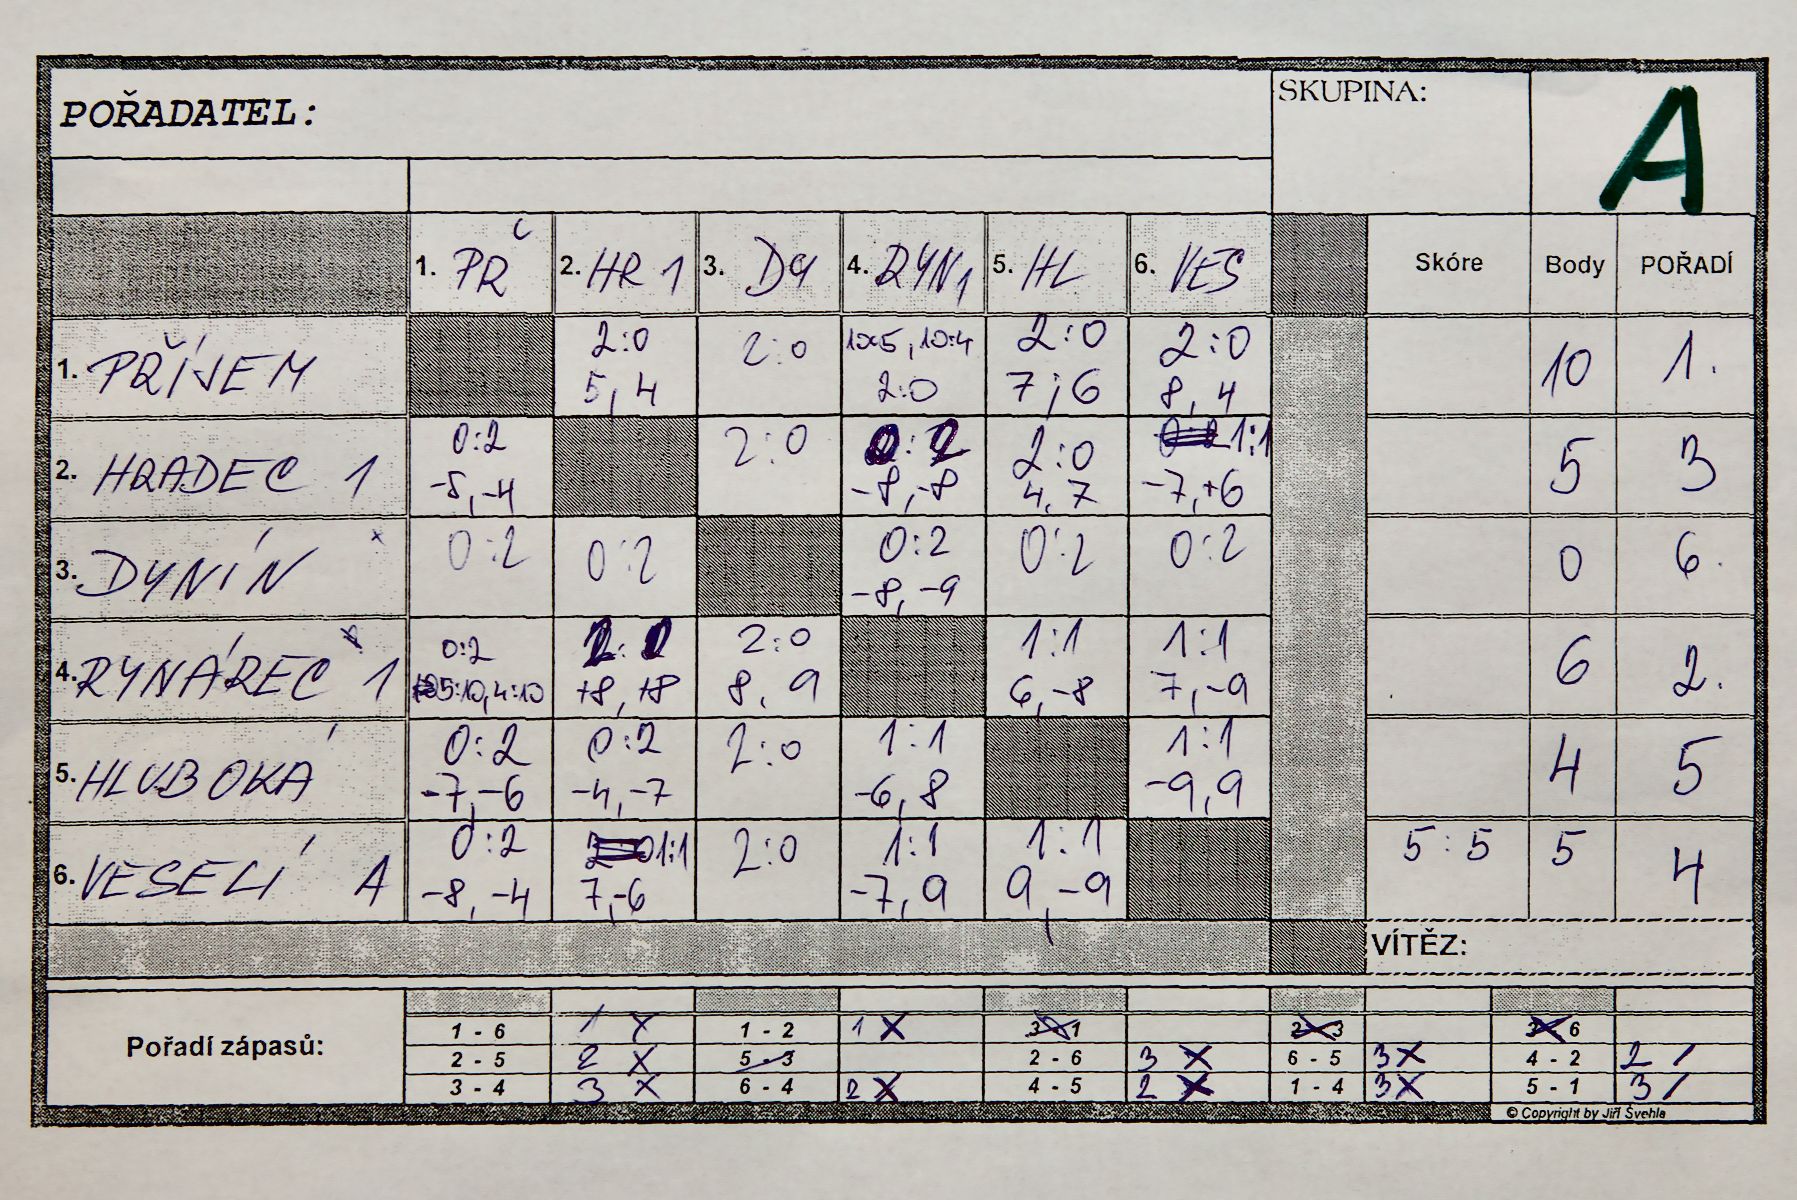 POŘADATEL:
SKUPINA:
A
1. PŘ 2. HR 1 3. DY 4. RYN1 5. HL 6. VES Skóre Body POŘADÍ
1. PŘÍJEM 2:0 2:0 10:5, 10:4 2:0 2:0 10 1.
5, 4 2:0 7; 6 8, 4
2. HRADEC 1 0:2 2:0 0:2 2:0 1:1 5 3
-5, -4 -8, -8 4, 7 -7, +6
3. DYNÍN 0:2 0:2 0:2 0:2 0:2 0 6.
-8, -9
4. RYNÁREC 1 0:2 2:0 2:0 1:1 1:1 6 2.
5:10, 4:10 +8, +8 8, 9 6, -8 7, -9
5. HLUBOKÁ 0:2 0:2 2:0 1:1 1:1 4 5
-7, -6 -4, -7 -6, 8 -9, 9
6. VESELÍ A 0:2 1:1 2:0 1:1 1:1 5:5 5 4
-8, -4 7, -6 -7, 9 9, -9
VÍTĚZ:
Pořadí zápasů:
1 - 6 1 X 1 - 2 1 X 3 - 1 2 - 3 3 - 6
2 - 5 2 X 5 - 3 2 - 6 3 X 6 - 5 3 X 4 - 2 2 /
3 - 4 3 X 6 - 4 2 X 4 - 5 2 X 1 - 4 3 X 5 - 1 3 /
© Copyright by Jiří Švehla